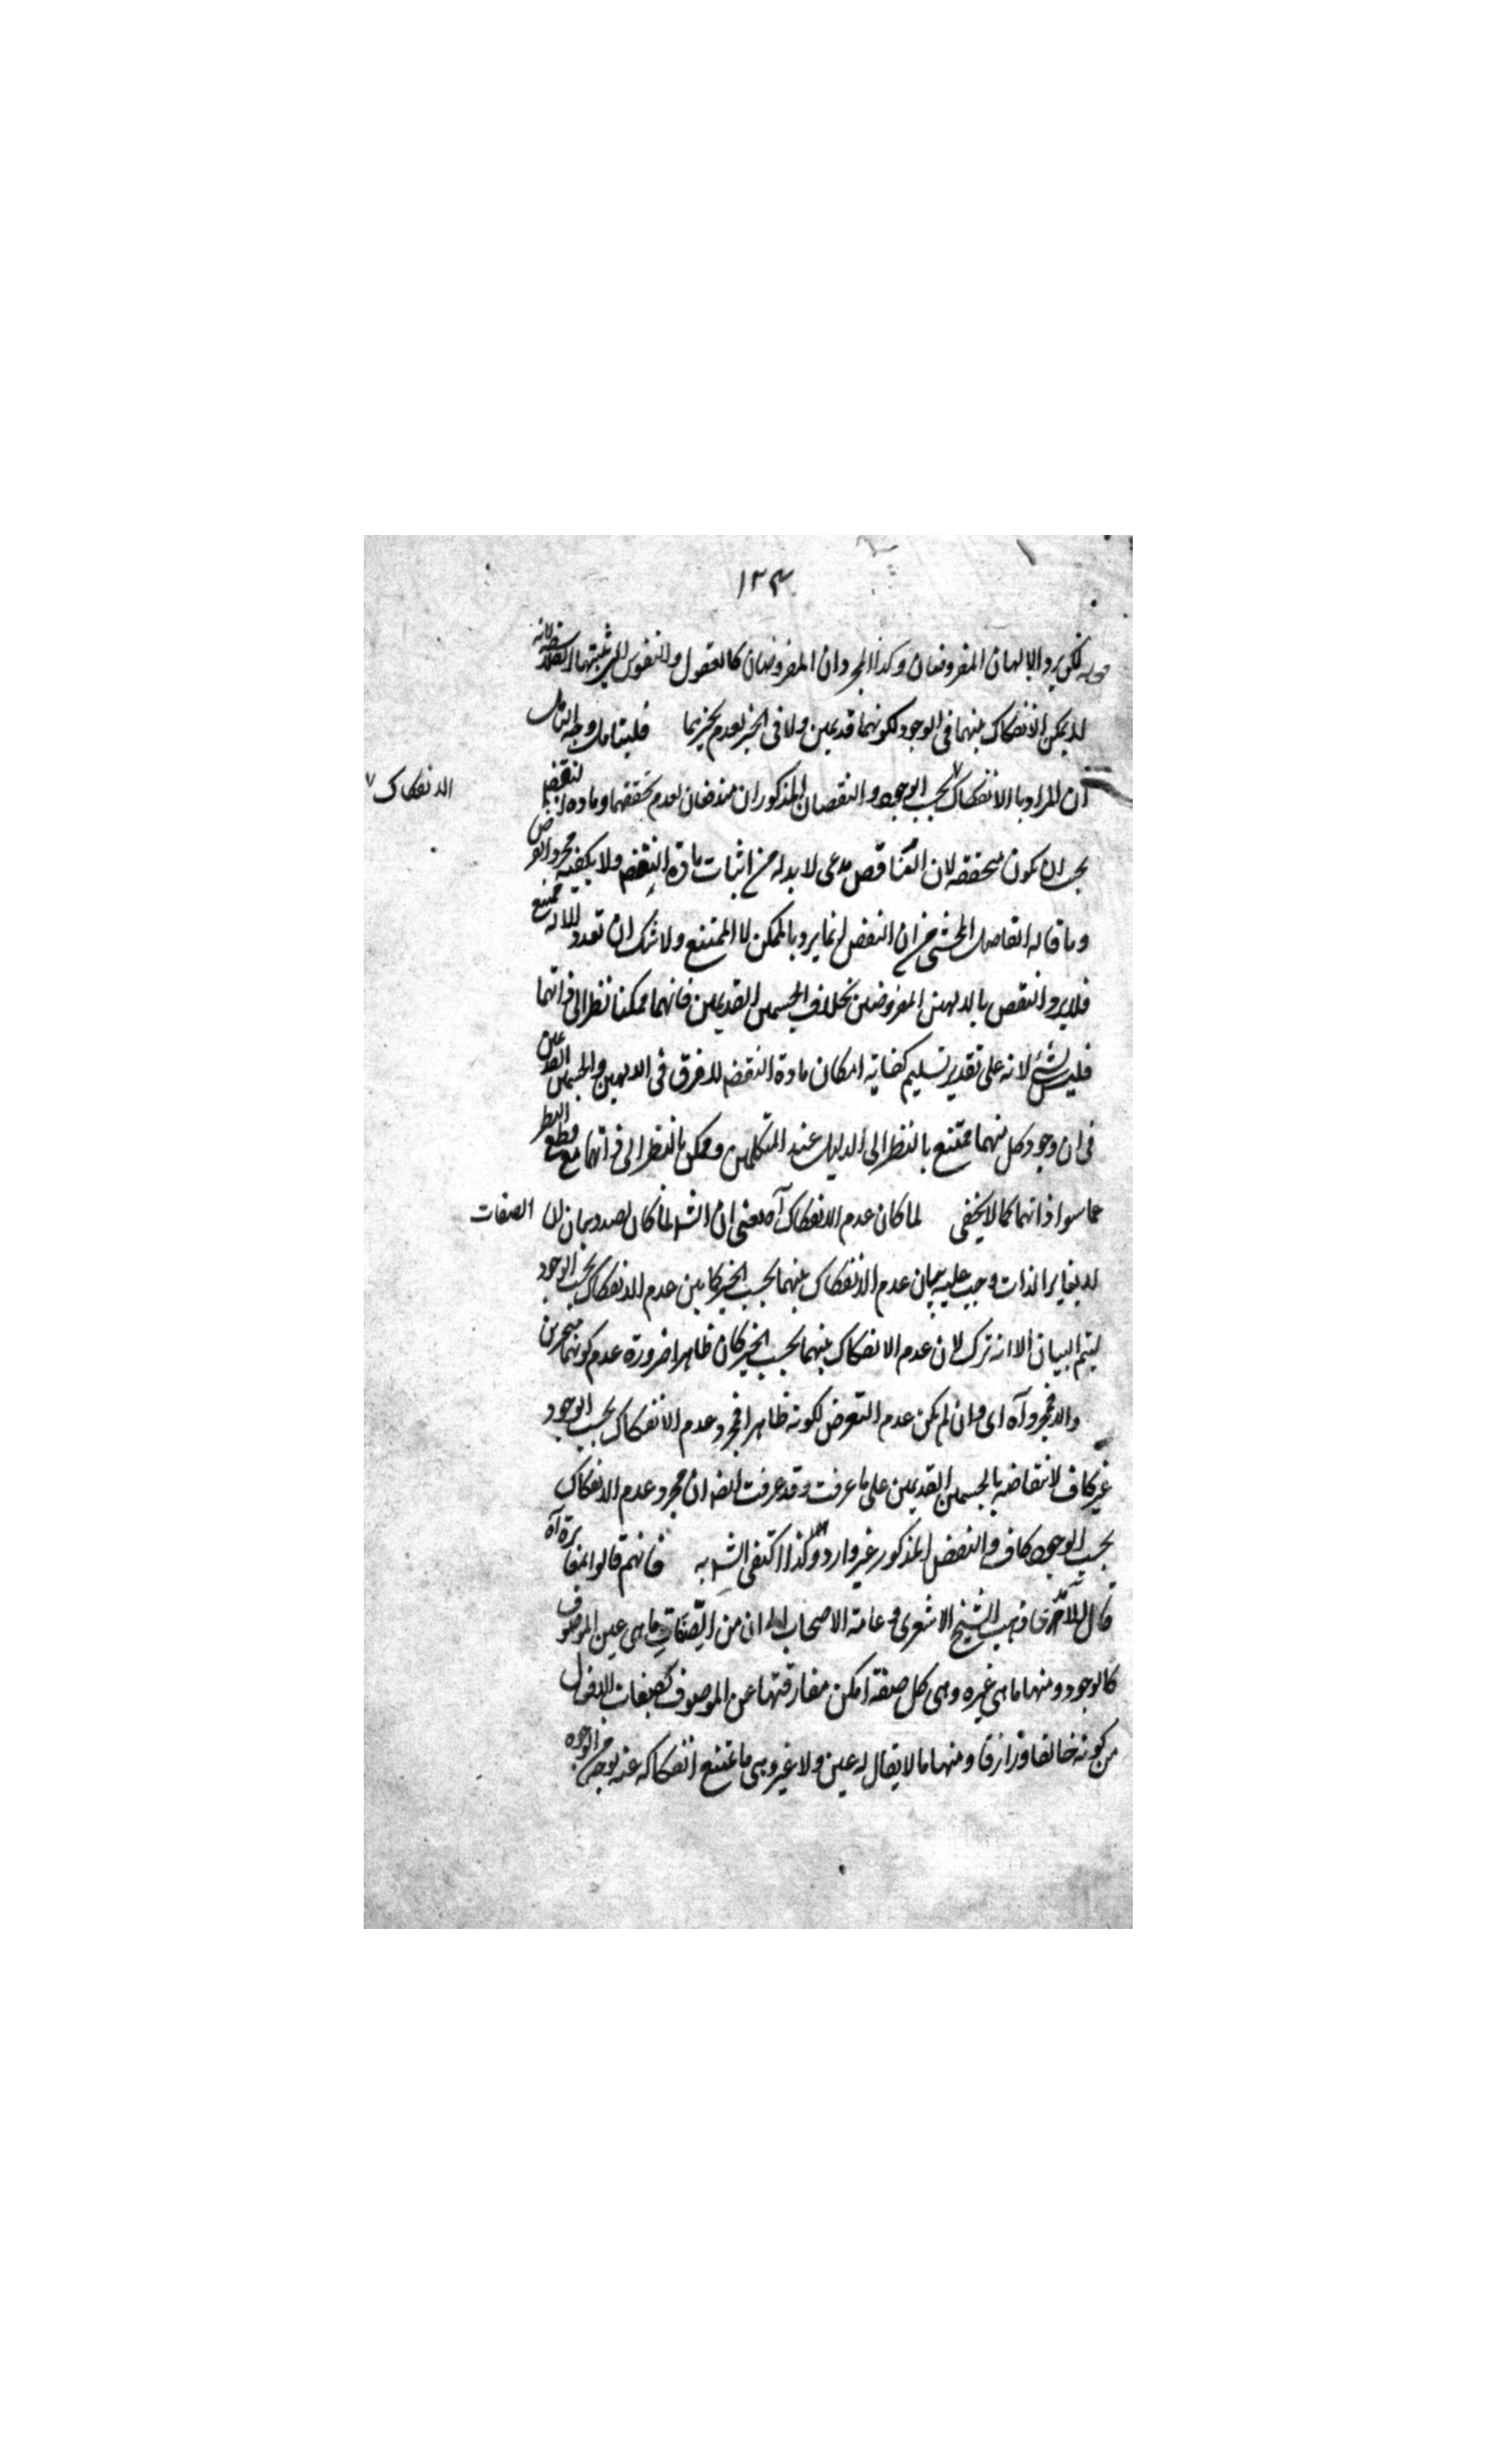 ١٢٤
قوله لكن يرد الالهان المفروضان وكذا المجردان المفروضان كالعقول والنفوس التى يثبتها الفلاسفة لانه
لا يمكن الانفكاك بينهما فى الوجود لكونهما قديمين ولا فى الحيز لعدم تحيزهما فليتامل وجه التامل
ان المراد بالانفكاك بحسب الوجود والنقضان المذكوران مندفعان لعدم تحققهما ومادة النقض
الانفكاك
يجب ان يكون متحققة لان الناقض مدعى لا بد له من اثبات مادة النقض ولا يكفيه مجرد الفرض
وما قاله الفاضل المحشى من ان النقض انما يرد بالممكن لا الممتنع ولا شك ان تعدد الاله ممتنع
فلا يرد النقض بالالهين المفروضين بخلاف الجسمين القديمين فانهما ممكنا نظرا الى ذاتهما
فليس بشئ لانه على تقدير تسليم كفاية امكان مادة النقض لا فرق فى الالهين والجسمين القديمين
فى ان وجود كل منهما ممتنع بالنظر الى الدليل عند المتكلمين وممكن بالنظر الى ذاتهما مع قطع النظر
عما سوا ذاتهما كما لا يخفى لما كان عدم الانفكاك آه يعنى ان الش لما كان لصدد بيان ان الصفات
لا يغاير الذات وجب عليه بيان عدم الانفكاك بينهما بحسب الحيز كما بين عدم الانفكاك بحسب الوجود
ليتم البيان الا انه ترك لان عدم الانفكاك بينهما بحسب الحيز كان ظاهرا ضرورة عدم كونهما متحيزين
والا فمجرد آه اى وان لم يكن عدم التعرض لكونه ظاهرا فمجرد عدم الانفكاك بحسب الوجود
غير كاف لانتقاضه بالجسمين القديمين على ما عرفت وقد عرفت ايضا ان مجرد عدم الانفكاك
بحسب الوجود كاف والنقض المذكور غير وارد ولذا اكتفى الش به فانهم قالوا المغايرة آه
قال الآمدى ذهب الشيخ الاشعرى وعامة الاصحاب الى ان من الصفات ما هى عين الموصوف
كالوجود ومنها ما هى غيره وهى كل صفة امكن مفارقتها عن الموصوف كصفات الافعال
من كونه خالقا ورازقا ومنها ما لا يقال له عين ولا غير وهى ما يمتنع انفكاكه عنه بوجه من الوجوه